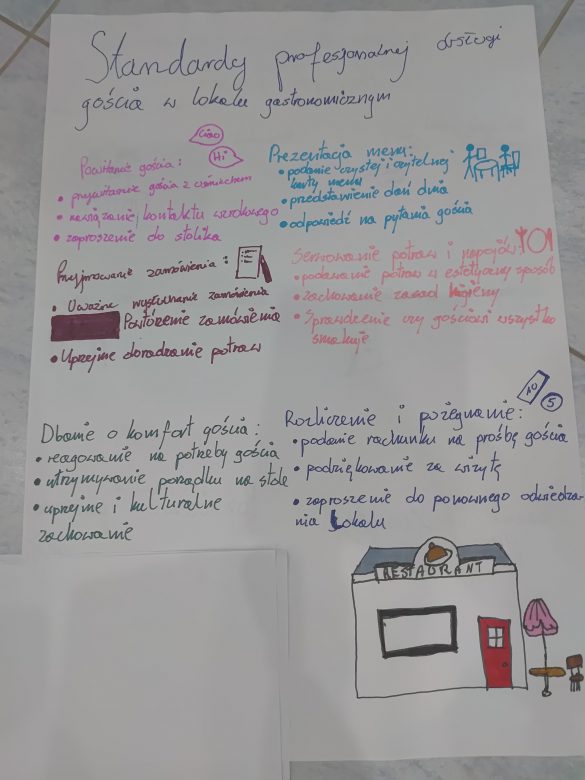 Standardy profesjonalnej obsługi
gościa w lokalu gastronomicznym
Ciao
Hi
Powitanie gościa:
• przywitanie gościa z uśmiechem
• nawiązanie kontaktu wzrokowego
• zaproszenie do stolika
Prezentacja menu:
• podanie czystej i czytelnej
karty menu
• przedstawienie dań dnia
• odpowiedź na pytania gościa
Przyjmowanie zamówienia:
• Uważne wysłuchanie zamówienia
Powtórzenie zamówienia
• Uprzejme doradzanie potraw
Serwowanie potraw i napojów:
• podawanie potraw w estetyczny sposób
• zachowanie zasad higieny
• Sprawdzenie czy gościowi wszystko
smakuje
Dbanie o komfort gościa:
• reagowanie na potrzeby gościa
• utrzymywanie porządku na stole
• uprzejme i kulturalne
zachowanie
10
5
Rozliczenie i pożegnanie:
• podanie rachunku na prośbę gościa
• podziękowanie za wizytę
• zaproszenie do ponownego odwiedza-
nia Lokalu
RESTAURANT